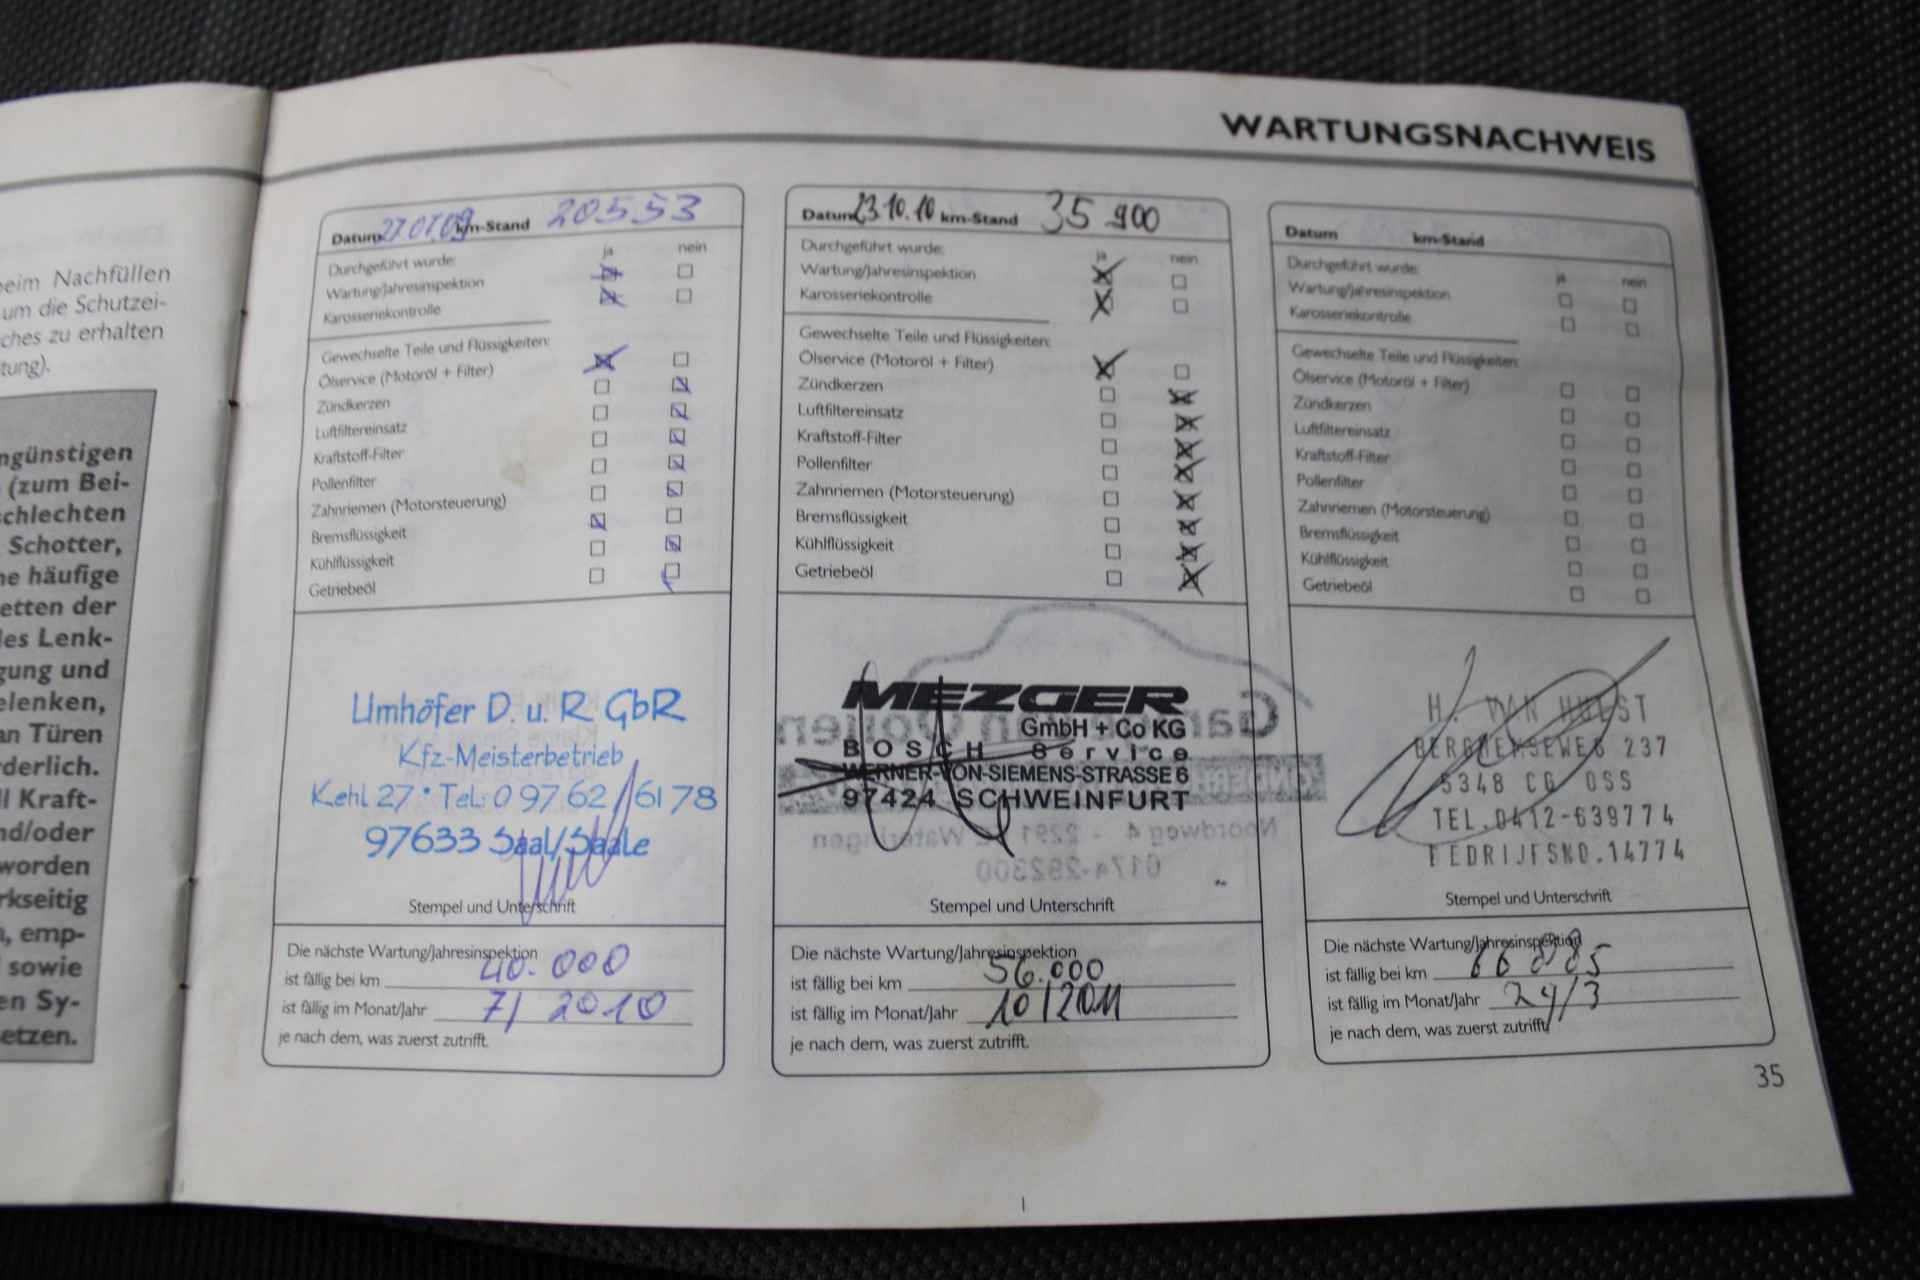 WARTUNGSNACHWEIS
beim Nachfüllen
um die Schutzei-
ches zu erhalten
tung).
ngünstigen
(zum Bei-
schlechten
Schotter,
ne häufige
etten der
des Lenk-
gung und
elenken,
an Türen
rderlich.
ll Kraft-
nd/oder
worden
rkseitig
, emp-
sowie
en Sy-
etzen.
Datum 27.07.09 km-Stand 20553
Durchgeführt wurde: ja nein
Wartung/Jahresinspektion
Karosseriekontrolle
Gewechselte Teile und Flüssigkeiten:
Ölservice (Motoröl + Filter)
Zündkerzen
Luftfiltereinsatz
Kraftstoff-Filter
Pollenfilter
Zahnriemen (Motorsteuerung)
Bremsflüssigkeit
Kühlflüssigkeit
Getriebeöl
Umhöfer D. u. R. GbR
Kfz.-Meisterbetrieb
Kehl 27 • Tel: 0 97 62 / 61 78
97633 Saal/Saale
Stempel und Unterschrift
Die nächste Wartung/Jahresinspektion
ist fällig bei km 40.000
ist fällig im Monat/Jahr 7/2010
je nach dem, was zuerst zutrifft.
Datum 23.10.10 km-Stand 35 900
Durchgeführt wurde: ja nein
Wartung/Jahresinspektion
Karosseriekontrolle
Gewechselte Teile und Flüssigkeiten:
Ölservice (Motoröl + Filter)
Zündkerzen
Luftfiltereinsatz
Kraftstoff-Filter
Pollenfilter
Zahnriemen (Motorsteuerung)
Bremsflüssigkeit
Kühlflüssigkeit
Getriebeöl
MEZGER
GmbH + Co KG
BOSCH Service
WERNER-VON-SIEMENS-STRASSE 6
97424 SCHWEINFURT
Stempel und Unterschrift
Die nächste Wartung/Jahresinspektion
ist fällig bei km 56.000
ist fällig im Monat/Jahr 10/2011
je nach dem, was zuerst zutrifft.
Datum km-Stand
Durchgeführt wurde: ja nein
Wartung/Jahresinspektion
Karosseriekontrolle
Gewechselte Teile und Flüssigkeiten:
Ölservice (Motoröl + Filter)
Zündkerzen
Luftfiltereinsatz
Kraftstoff-Filter
Pollenfilter
Zahnriemen (Motorsteuerung)
Bremsflüssigkeit
Kühlflüssigkeit
Getriebeöl
H. VAN HULST
237
5348 CG OSS
TEL.0412-639774
BEDRIJFSNO.14774
Stempel und Unterschrift
Die nächste Wartung/Jahresinspektion
ist fällig bei km
ist fällig im Monat/Jahr 24/3
je nach dem, was zuerst zutrifft.
35